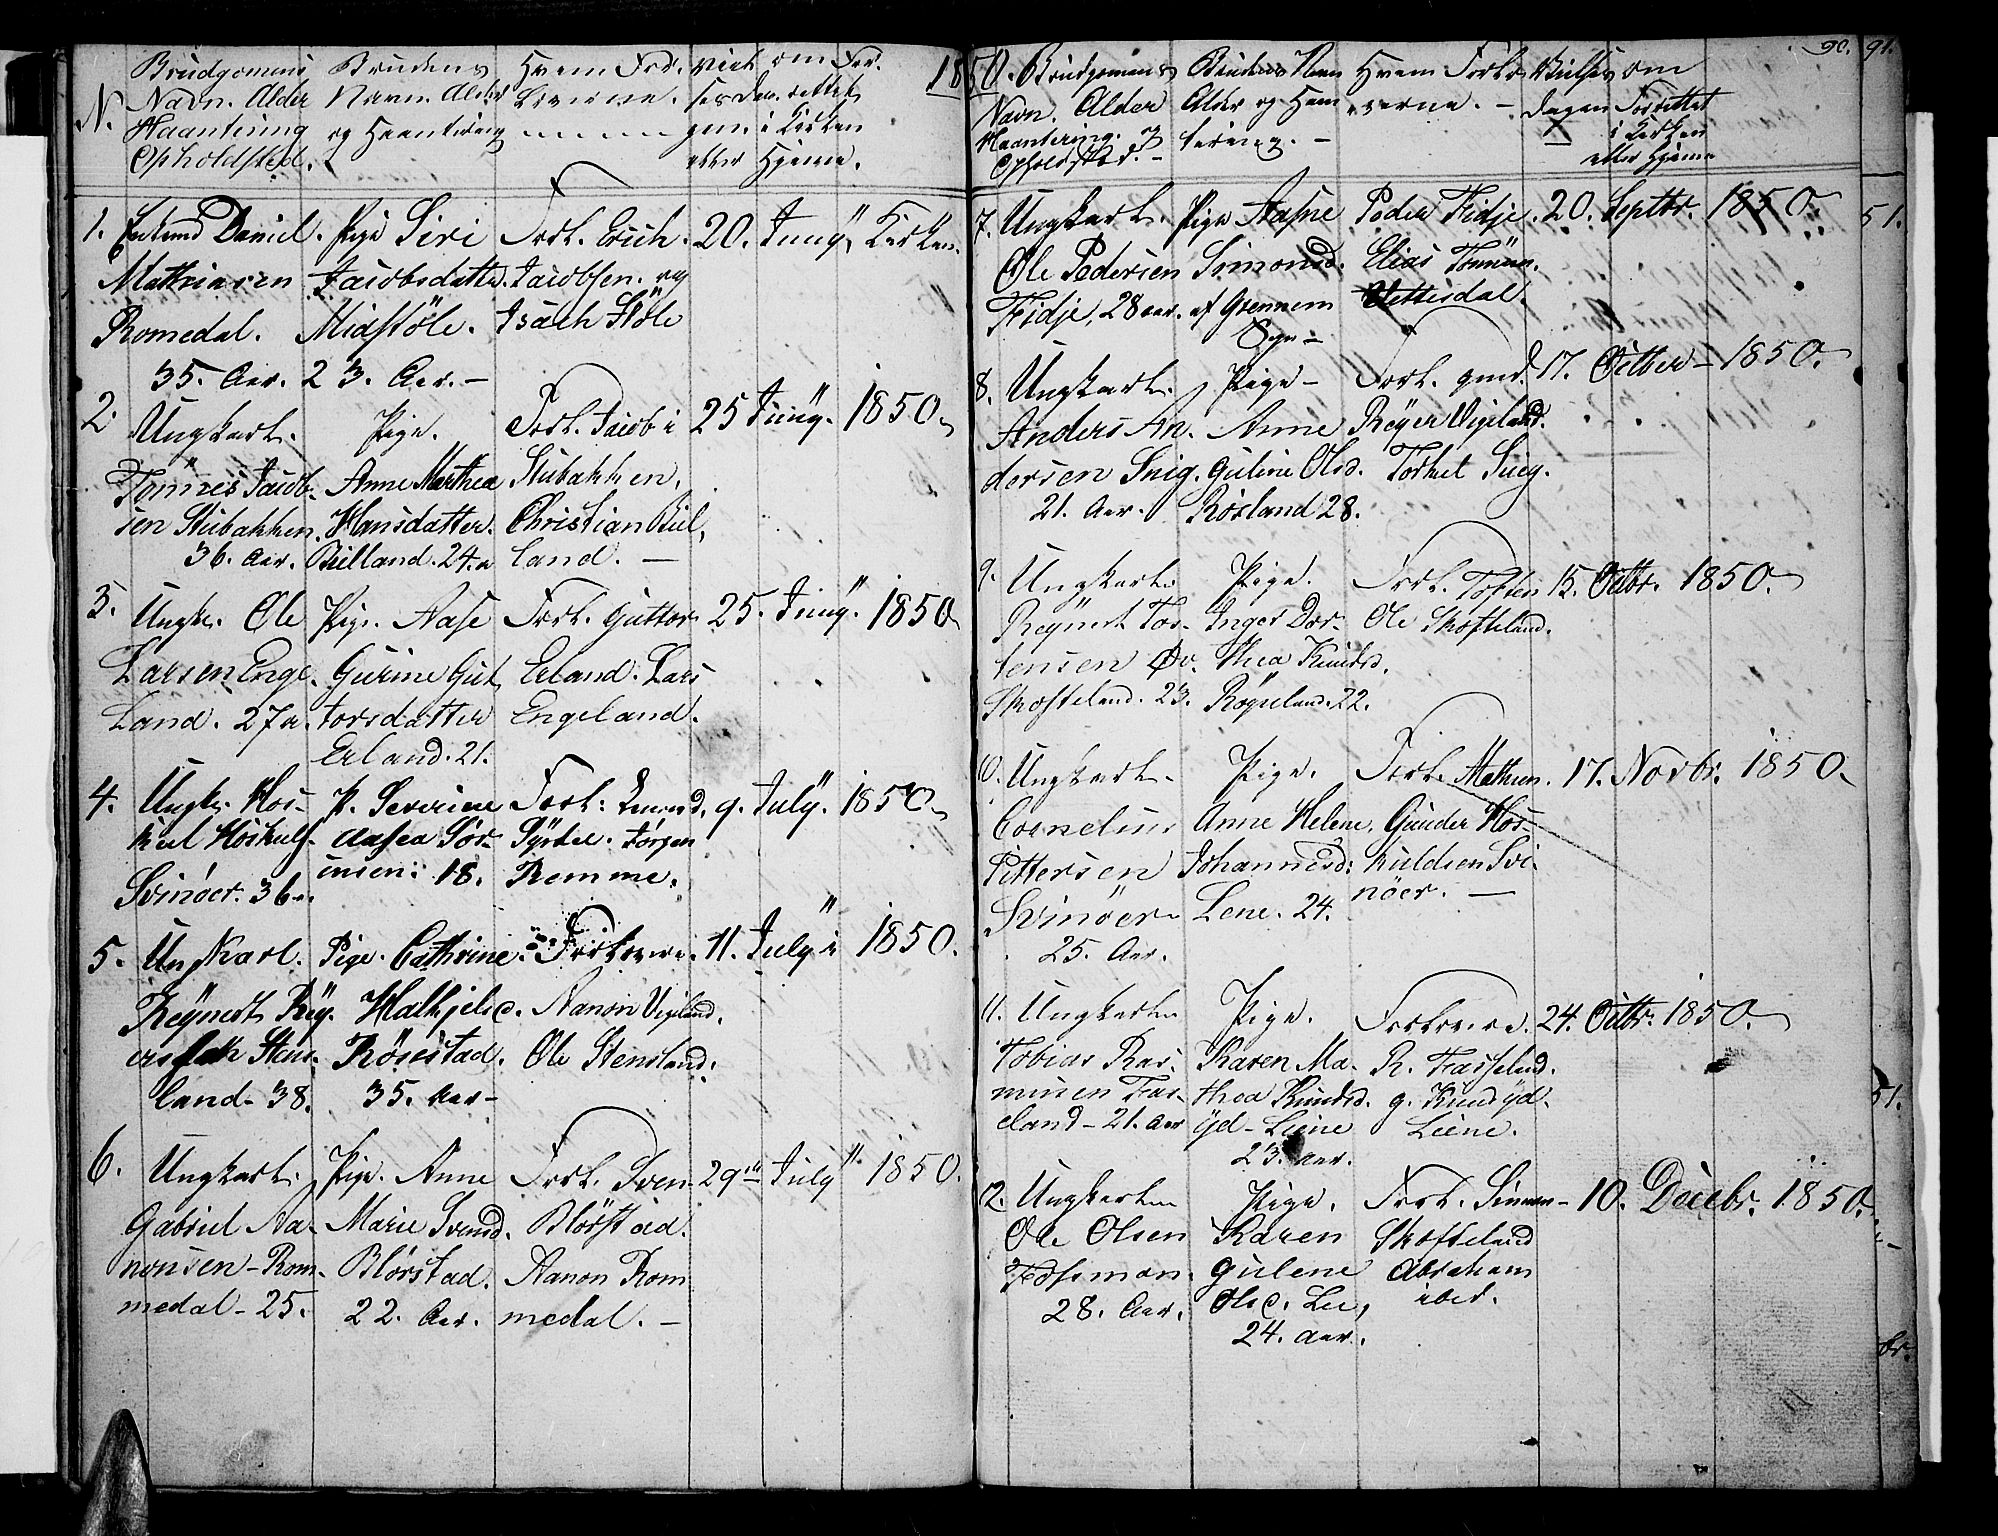 1850.
N.
Brudgomens
Navn. Alder
Haantering
Opholdsted.
Brudens
Navn. Alder
og Haantering
Hvem For.
loverne.
Viel
sesda
gen.
om For.
rettet
i Kirken
eller Hjeme.
1. Enkemd Daniel
Mathiasen
Romedal.
35. Aar.
Pige Siri
Jacobsdatter.
Midstöle.
23. Aar.
Forl. Erich
Jacobsen. og
Isach Stöle
20. Juny, Kirken.
2. Ungkarl.
Tönnes Jacob-
sen Stubakken.
36. Aar.
Pige.
Anne Marthea
Hansdatter.
Bielland. 24. a
Forl. Jacob i
Stubakken,
Christian Biel,
land.
25 Juny. 1850
3. Ungk. Ole
Larsen Enge
Land. 27 a.
Pige. Aase
Gurine Gut
torsdatter
Erland. 21.
Forl. Guttor
Erland. Lars
Engeland.
25. Juny. 1850
4. Ungk. Hos-
kul Hoskuls.
Svinöer. 36
P. Severine
Aasea Sör-
ensen: 18.
Forl:
Syrdal. Jörgen
Remme.
9. July. 1850
5. UngKarl.
Reynert Rey.
Stens-
land- 38.
Pige. Cathrine.
Röiestad.
35. Aar-
Forlovere.
Nanon Vigeland.
Ole Stensland.
11. July 1850.
6. Ungkarl.
Gabriel Na-
nonsen - Rom-
medal - 25.
Pige. Anne
Marie Svensd.
Blörstad.
22. Aar.
Forl. Sven
Blörstad.
Nanon Rom
medal.
29 July 1850.
90. 91.
Brudgomens
Navn. Alder
Haantering. og
Opholdsted.
Brudens Navn
Alder og Haan
tering.
Hvem Forlo
verne.
Vielses
dagen
om
Forrettet
i Kirken
eller Hjeme
7. Ungkarl.
Ole Pedersen
Fidje, 28 aar.
Pige Aasne
Simonsd.
af Grennem
Sogn
Peder Fidje.
Elias Tönnesn.
Vettesdal.
20. Septbr. 1850.
51.
8. Ungkarl.
Anders An.
dersen Snig.
21. Aar.
Pige
Anne
Guline Olsd.
Rosland 28.
Forl. gmd.
Reyer Vigeland.
Torkel Snig.
17. Octber 1850.
9. Ungkarl.
Reynert Tos-
tensen Öv.
Skofteland. 23.
Pige.
Inger Dor-
thea Knudsd.
Röyseland. 22.
Forl. Tosten
Ole Skofteland.
15. Octbr. 1850.
10. Ungkarl.
Cornelius
Pettersen
Svinöer
25. Aar.
Pige.
Anne Helene.
Johannesd:
Lene. 24.
Forl. Mathias.
Gunder Hos-
kuldsen Svi-
nöer.
17. Novbr. 1850.
11. Ungkarl.
Tobias Ras-
musen Fas-
eland - 21. aar
Pige.
Karen Ma-
thea Knudsd.
Yd- Liene
23. aar.
Forlovere.
R. Fasseland.
g. Knud Yd.
Liene.
24. Octbr. 1850.
51.
12. Ungkarl.
Ole Olsen
Fosmon.
28. Aar.
Pige.
Karen
Gulene
Olsd. Lee,
24. aar.
Forl. Simon
Skofteland
Abraham
ibid.
10. Decebr. 1850.
br.